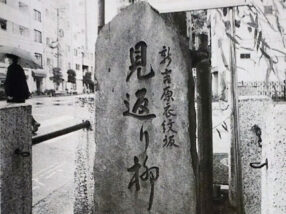 新吉原衣紋坂
見返り柳